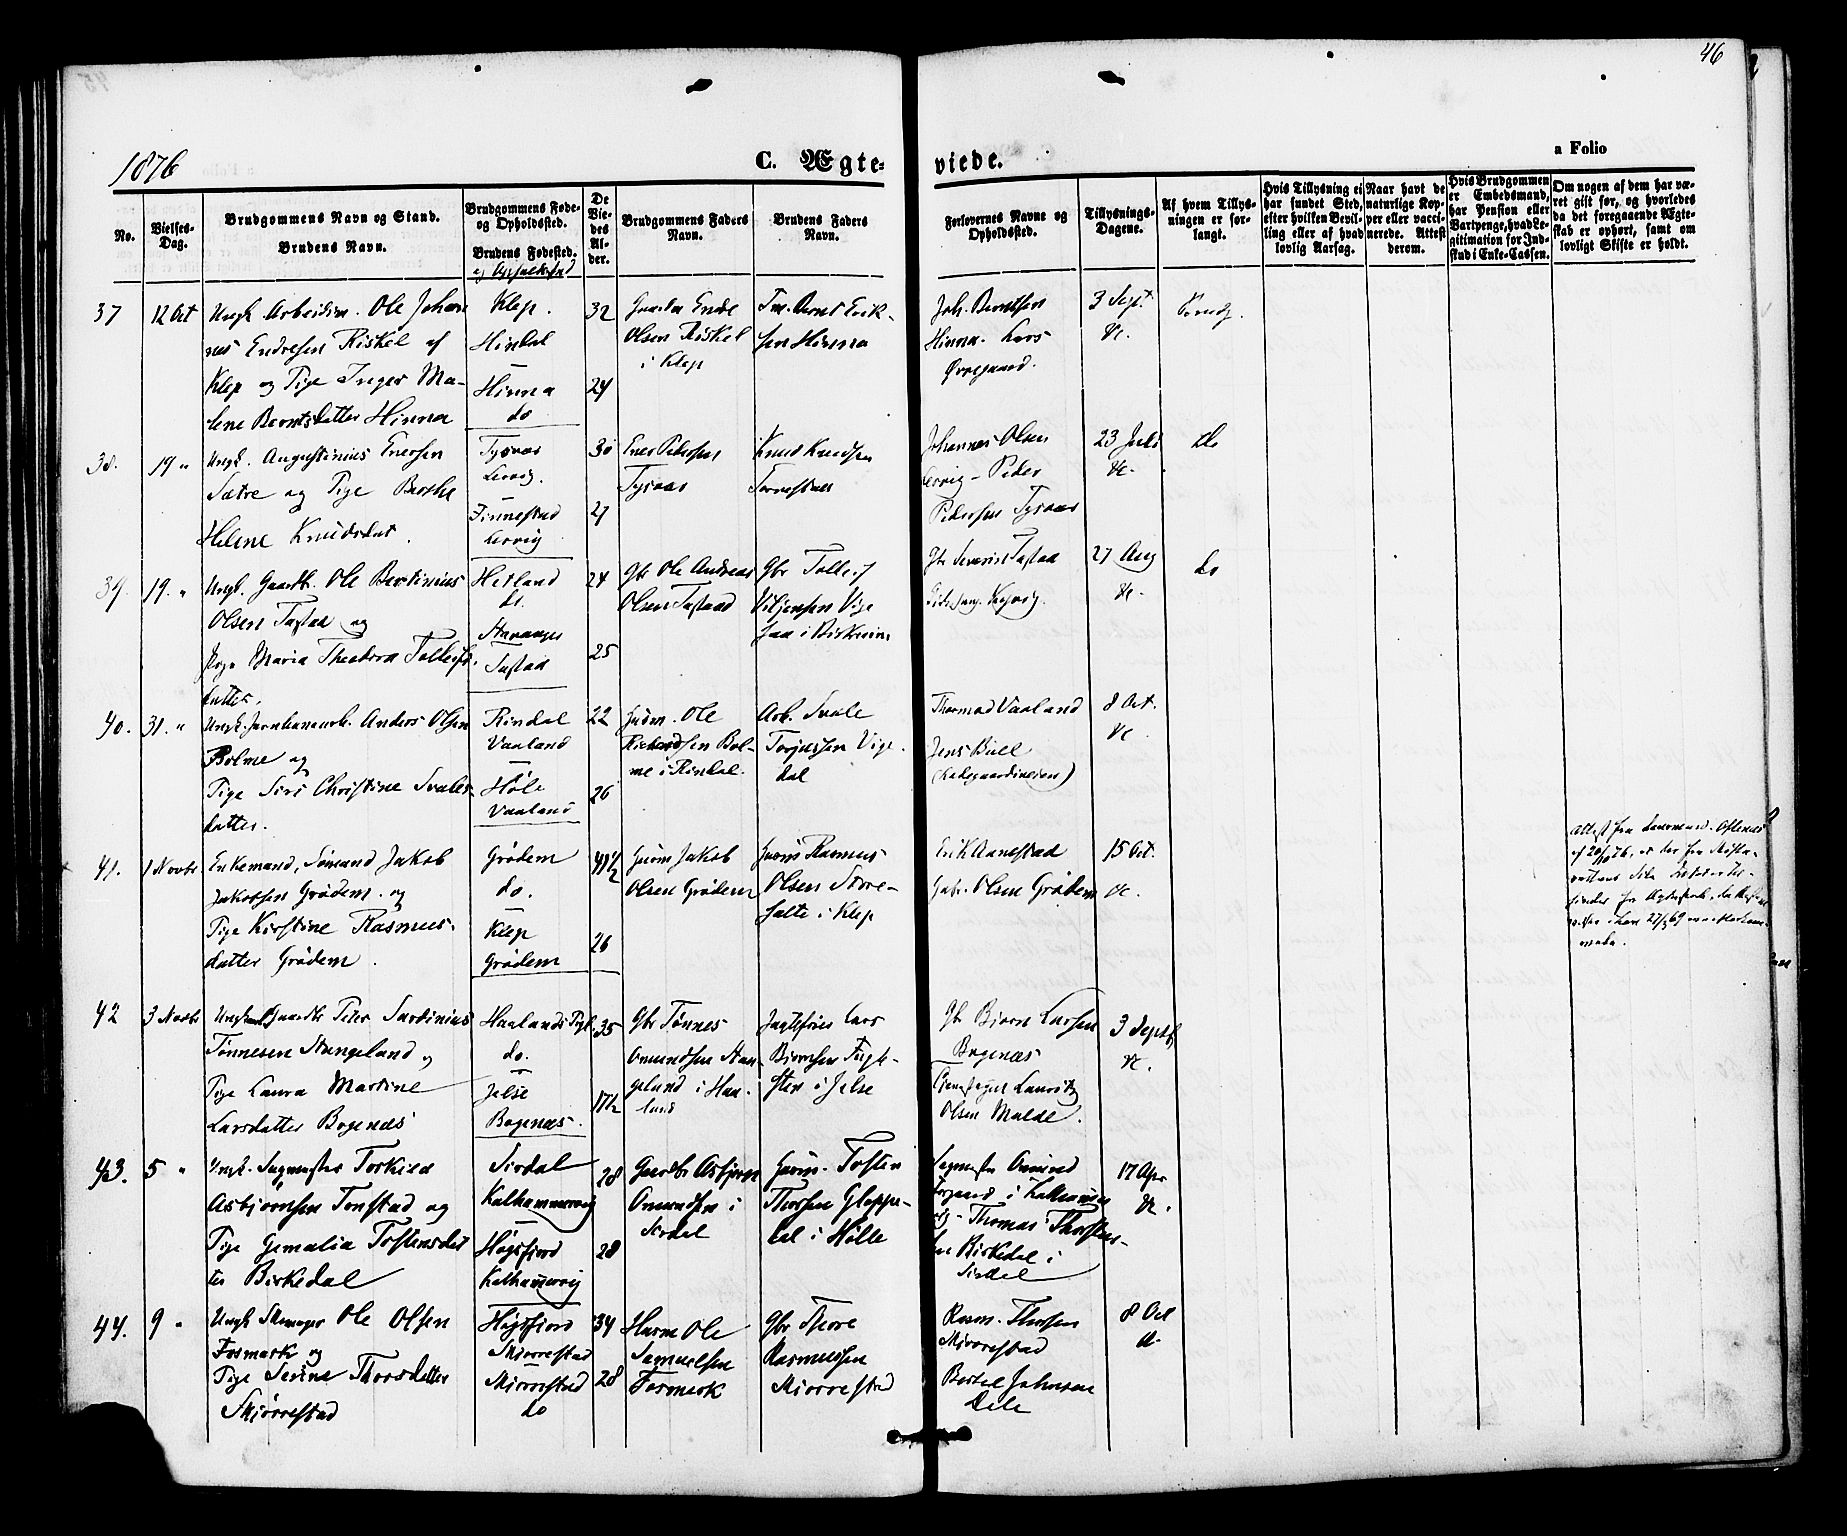 46
1876
C. Ægteviede.
a Folio
No.
Vielses-Dag.
Brudgommens Navn og Stand.
Brudens Navn.
Brudgommens Føde- og Opholdssted.
Brudens Fødested.
og Opholdssted
De Viedes Alder.
Brudgommens Faders Navn.
Brudens Faders Navn.
Forlovernes Navne og Opholdssted.
Tillysnings-Dagene.
Af hvem Tillysningen er forlangt.
Hvis Tillysning ei har fundet Sted, efter hvilken Bevilling eller af hvad lovlig Aarsag.
Naar havt de naturlige Kopper eller vaccinerede. Attest derom.
Hvis Brudgommen er Embedsmand, har Pension eller Vartpenge, hvad Legitimation for Indskud i Enke-Cassen.
Om nogen af dem har været gift før, og hvorledes da det foregaaende Ægteskab er ophørt, samt om lovligt Skifte er holdt.
37 12 Oct
Ungk Arbeidsm. Ole Johannes Endresen Riskel af
Klep og Pige Inger Malene Berntsdatter Hinna
Klep.
Hindal
Hinna
do
32
24
Olsen Riskel
i Klep
Bernt Eriksen Hinna
Joh. Berntsen
Hinna. Lars
3 Sept.
&c.
38. 19 "
Ungk. Augustinius Enersen
Sætre og Pige Berthe
Helene Knudsdat.
Tysvær
Lervig.
Finnestad
Lervig
30
27
Ener Pedersen
Tysvær
Knud Knudsen
Torvestad
Johannes Olsen
Lervig - Peder
Pedersen Tysvær
23 Juli
&c.
do
39. 19. "
Ungk. Gaardb. Ole Bertinius
Olsen Tastad og
Pige Maria Theodora Tolleifsdatter.
Hetland
do.
Stavanger
Tastad
24
25
Gbr Ole Andreas
Olsen Tastad
Gbr Tolleif
Gbr Severin Tastad
27 Aug
&c.
do
40. 31. "
Ungk. Jernbanearb. Anders Olsen
Bolme og
Pige Siri Christine Svalesdatter.
Rindal
Vaaland
Høle
Vaaland
22
26
Husm. Ole
Richardsen Bolme i Rindal.
Arb. Svale
Torjussen Vigedal
Thormod Vaaland
Jens Bull
(Ladegaardsveien)
8 Oct.
&c.
41. 1 Novbr
Enkemand, Sømand Jakob
Jakobsen Grødem. og
Pige Kirstine Rasmusdatter Grødem.
Grødem
do.
Klep
Grødem
41½
26
Husm Jakob
Olsen Grødem
Husm Rasmus
Olsen Storesalte i Klep
Erik Aanestad
Gabr. Olsen Grødem
15 Oct.
&c.
Attest fra
42 3 Novbr
Ungk Gaardbr Peter Sardinius
Tønnesen Stangeland og
Pige Laura Martine
Larsdatter Bogenæs
Haalands Pgd.
do.
Jelse
Bogenæs.
35
17½
Gbr Tønnes
Omundsen Stangeland i Haaland
Lars
Bjørnsen
i Jelse
Gbr Bjørn Larsen
Bogenæs
Lauritz
Olsen Malde.
3 Septb.
&c.
43. 5 "
Ungk. Sagmester Torkild
Asbjørnsen Tonstad og
Pige Gemalia Tostensdatter Birkedal
Sirdal
Kalhammervig
Høgsfjord
Kalhammervig
28
28
Gaardbr Asbjørn
Omundsen i
Sirdal
Husm. Tosten
Thorsen Gloppedal i Hølle
Sagmester Omund
Thomas Thorstensen Birkedal i
Sirdal
17 Apr
&c.
44. 9 "
Ungk Skomager Ole Olsen
Fosmark og
Pige Serine Thorsdatter
Skjørrestad
Høgsfjord
Skjørrestad
Skjørrestad
do
34
28
Husm Ole
Samuelsen
Fosmark
Gbr Thore
Rasmussen
Skjørrestad
Rasm. Thorsen
Skjørrestad
Bertel Johnsen
Lele
8 Oct
&c.